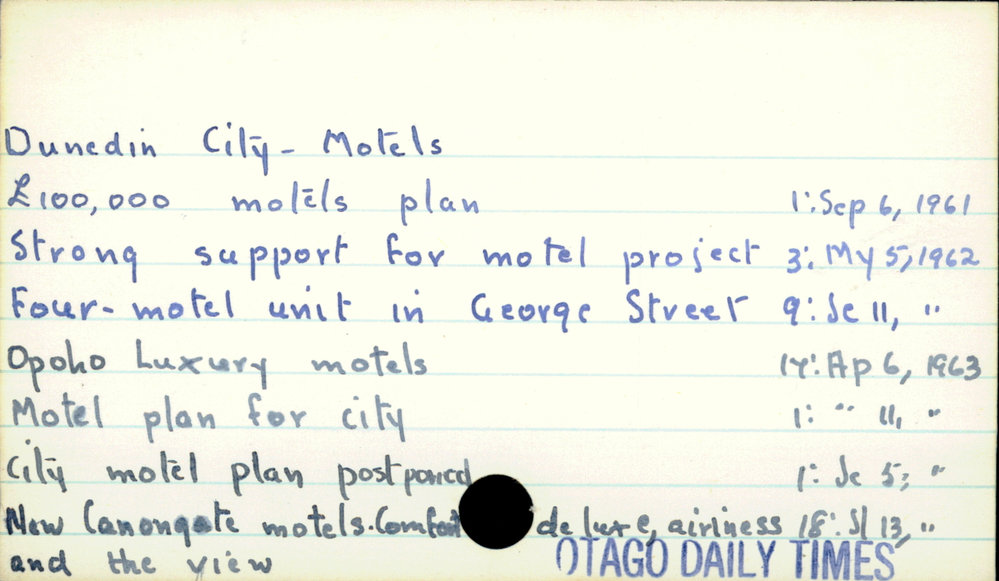 Dunedin City - Motels
£100,000 motels plan 1: Sep 6, 1961
Strong support for motel project 3: My 5, 1962
Four-motel unit in George Street 9: Je 11, "
Opoho Luxury motels 14: Ap 6, 1963
Motel plan for city 1: " 11, "
City motel plan postponed 1: Je 5; "
New Canongate motels. Comfort de luxe, airiness 18: Jl 13, "
and the view
OTAGO DAILY TIMES